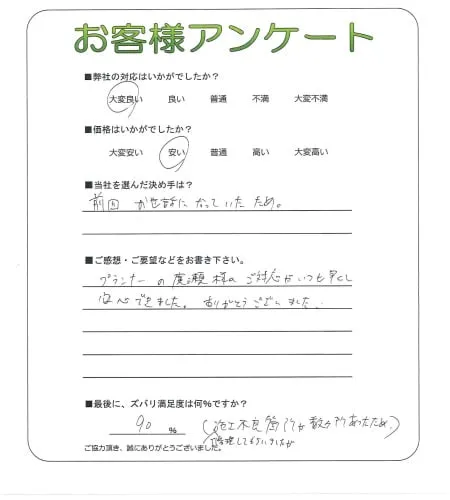 お客様アンケート
■弊社の対応はいかがでしたか?
大変良い 良い 普通 不満 大変不満
■価格はいかがでしたか?
大変安い 安い 普通 高い 大変高い
■当社を選んだ決め手は?
前回 お世話になっていたため。
■ご感想・ご要望などをお書き下さい。
プランナーの廣瀬様のご対応がいつも早く
安心できました。ありがとうございました。
■最後に、ズバリ満足度は何%ですか?
90 % (施工不良箇所が数ヶ所あったため。
修理してもらいましたが
ご協力頂き、誠にありがとうございました。